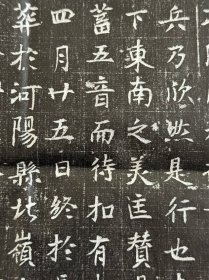 兵乃欣然是行也
下東南之美匡贊
蓄五音而待扣有
四月廿五日終於
葬於河陽縣北嶺